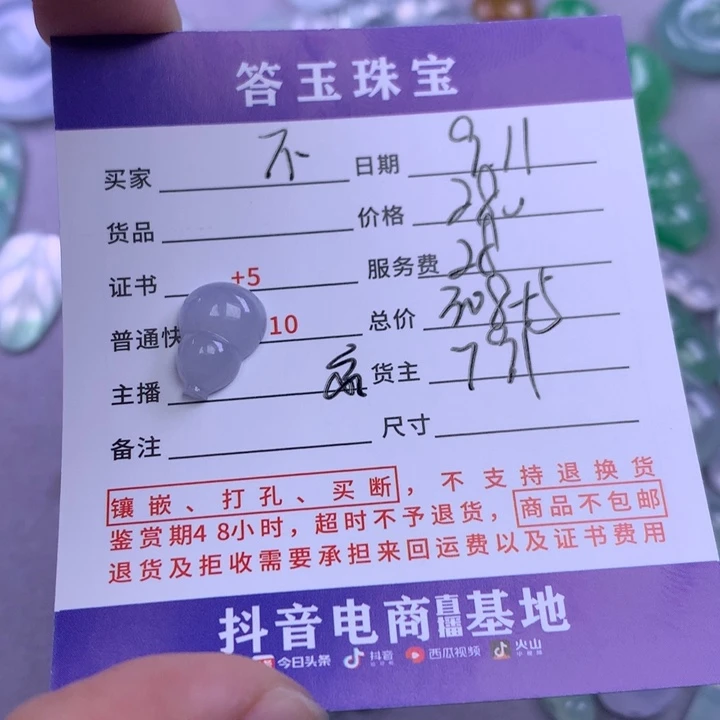 答玉珠宝
买家 不 日期 9.11
货品 价格 280
证书 +5 服务费 28
普通快 10 总价 308+5
主播 货主 791
备注 尺寸
镶嵌、打孔、买断，不支持退换货
鉴赏期48小时，超时不予退货，商品不包邮
退货及拒收需要承担来回运费以及证书费用
抖音电商直播基地
今日头条 抖音 西瓜视频 火山